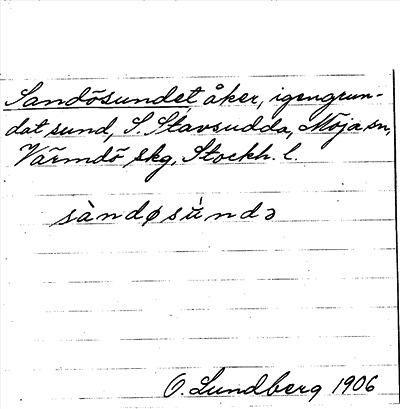 Sandösundet åker, igengrun-
dat sund, S. Stavsudda, Möja sn,
Värmdö skg, Stockh. l.
sàndøsúndə
O. Lundberg 1906